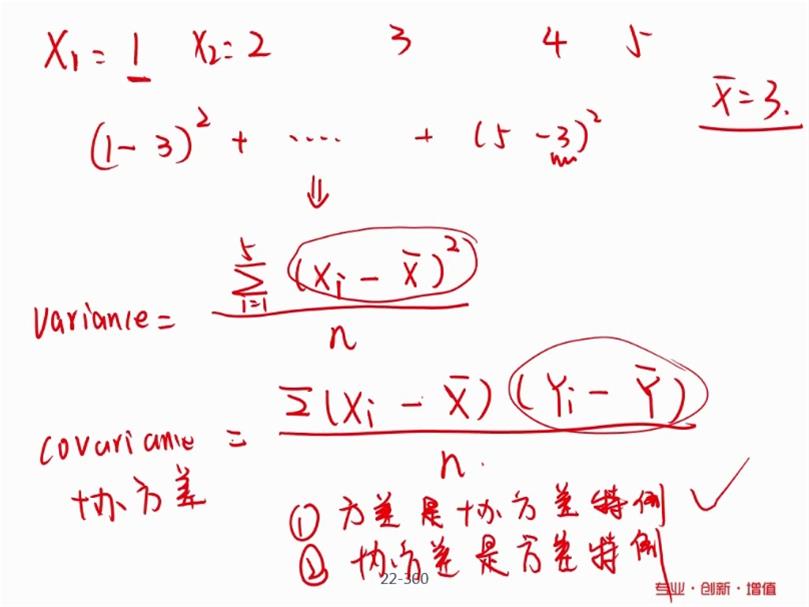 X₁ = 1 X₂ = 2 3 4 5
X̄ = 3.
(1 - 3)² + ···· + (5 - 3)²
⇓
Variance = \frac{\sum_{i=1}^{5} (X_i - X̄)²}{n}
Covariance = \frac{\sum (X_i - X̄) (Y_i - Ȳ)}{n}.
协方差
① 方差是协方差特例 ✓
② 协方差是方差特例
22-300
专业·创新·增值